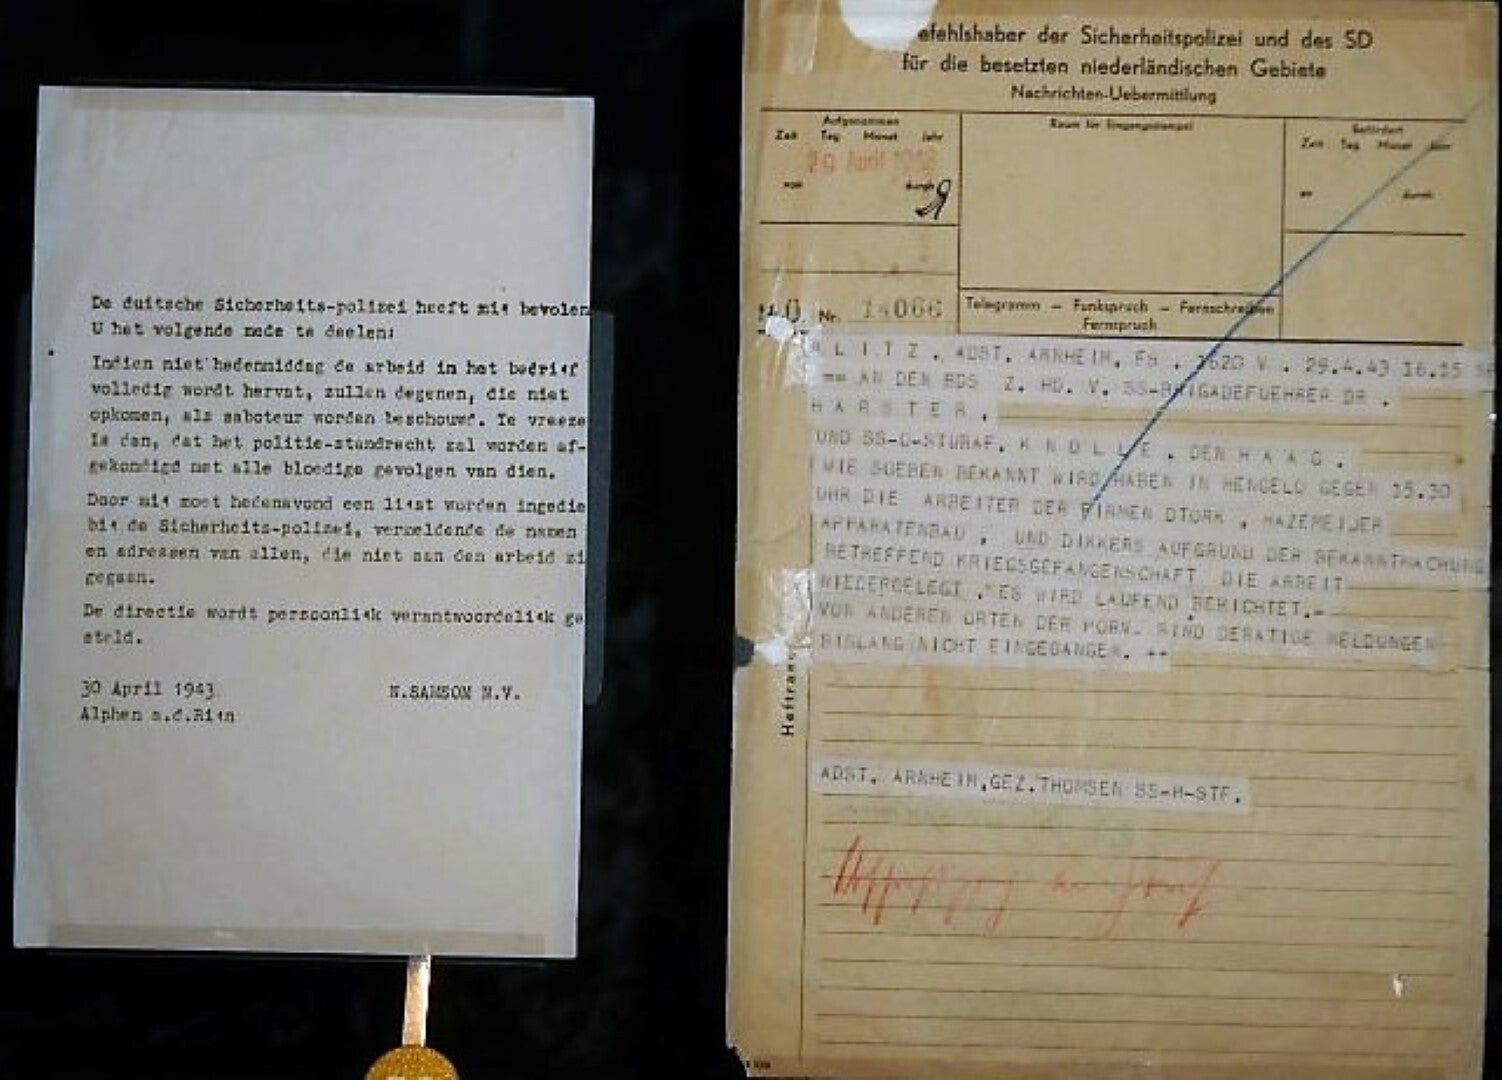 De duitsche Sicherheits-polizei heeft mij bevolen
U het volgende mede te deelen:
Indien niet hedenmiddag de arbeid in het bedrijf
volledig wordt hervat, zullen degenen, die niet
opkomen, als saboteur worden beschouwd. Te vreeze
is dan, dat het politie-standrecht zal worden af-
gekondigd met alle bloedige gevolgen van dien.
Door mij moet hedenavond een lijst worden ingedie
bij de Sicherheits-polizei, vermeldende de namen
en adressen van allen, die niet aan den arbeid zi
gegaan.
De directie wordt persoonlijk verantwoordelijk ge
steld.
30 April 1943 N.SAMSOM N.V.
Alphen a.d.Rijn
efehlshaber der Sicherheitspolizei und des SD
für die besetzten niederländischen Gebiete
Nachrichten-Uebermittlung
Aufgenommen
Zeit Tag Monat Jahr
29 April
von durch
Raum für Eingangsstempel
Befördert
Zeit Tag Monat Jahr
an durch
Nr. 14066
Telegramm — Funkspruch — Fernschreiben
Fernspruch
B L I T Z . ADST. ARNHEIM, FS . 1620 V . 29.4.43 16.15
== AN DEN BDS Z. HD. V. SS-BRIGADEFUEHRER DR .
H A R S T E R ,
UND SS-O-STUBAF. K N O L L E . DEN H A A G .
WIE SOEBEN BEKANNT WIRD HABEN IN HENGELO GEGEN 15.30
UHR DIE ARBEITER DER FIRMEN STORK , HAZEMEIJER
APPARATENBAU , UND DIKKERS AUFGRUND DER BEKANNTMACHUNG
BETREFFEND KRIEGSGEFANGENSCHAFT DIE ARBEIT
NIEDERGELEGT . ES WIRD LAUFEND BERICHTET.=
VON ANDEREN ORTEN DER PROV. SIND DERATIGE MELDUNGEN
BISLANG NICHT EINGEGANGEN. ++
Heftrand
ADST. ARNHEIM,GEZ.THOMSEN SS-H-STF.